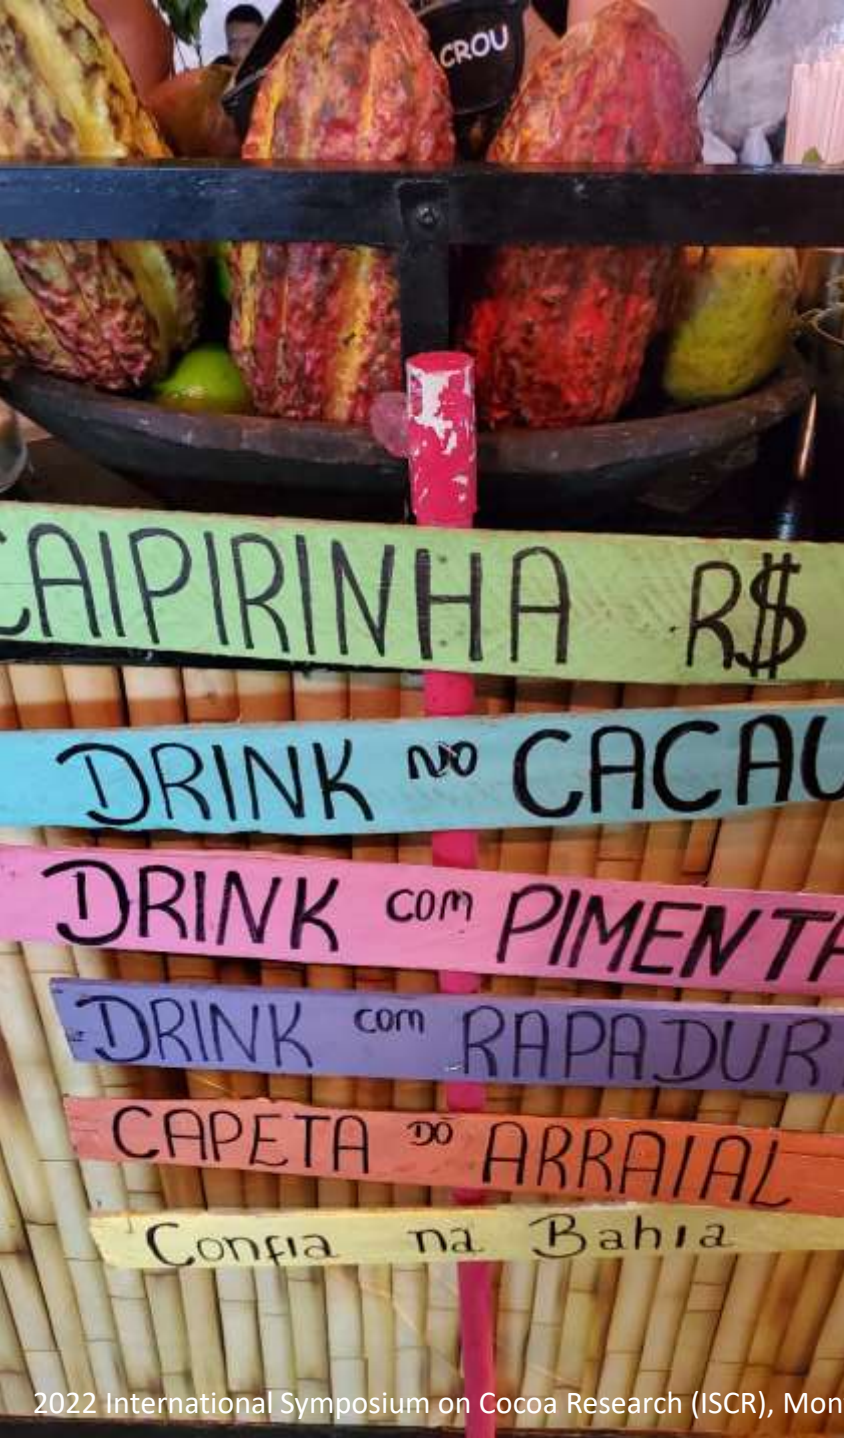 CROU
CAIPIRINHA R$
DRINK NO CACAU
DRINK com PIMENTA
DRINK com RAPADUR
CAPETA DO ARRAIAL
Confia na Bahia
2022 International Symposium on Cocoa Research (ISCR), Mon